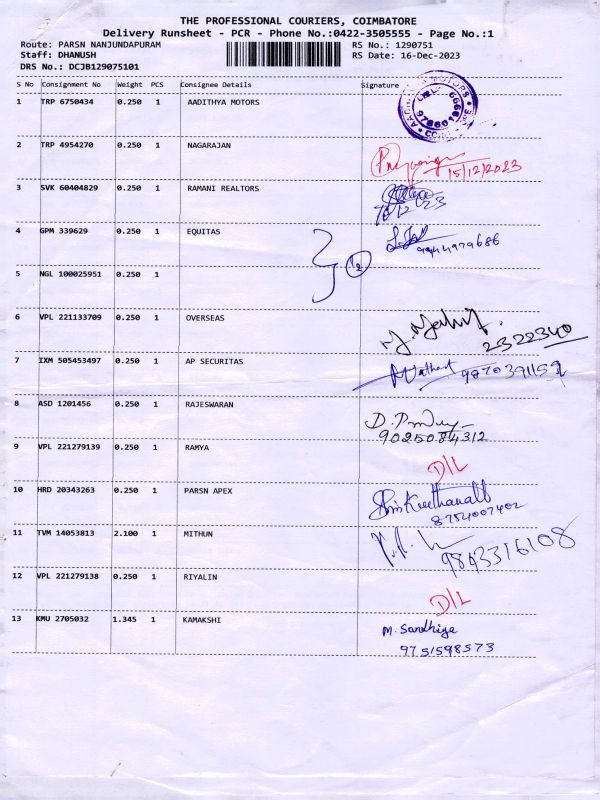 THE PROFESSIONAL COURIERS, COIMBATORE
Delivery Runsheet - PCR - Phone No.:0422-3505555 - Page No.:1
Route: PARSN NANJUNDAPURAM RS No.: 1290751
Staff: DHANUSH RS Date: 16-Dec-2023
DRS No.: DCJB129075101
S No Consignment No Weight PCS Consignee Details Signature
1 TRP 6750434 0.250 1 AADITHYA MOTORS
2 TRP 4954270 0.250 1 NAGARAJAN
15/12/2023
3 SVK 60404829 0.250 1 RAMANI REALTORS
4 GPM 339629 0.250 1 EQUITAS
9944979686
5 NGL 100025951 0.250 1
6 VPL 221133709 0.250 1 OVERSEAS
2322340
7 IXM 505453497 0.250 1 AP SECURITAS
8 ASD 1201456 0.250 1 RAJESWARAN
9025084312
9 VPL 221279139 0.250 1 RAMYA
D/L
10 HRD 20343263 0.250 1 PARSN APEX
8754007402
11 TVM 14053813 2.100 1 MITHUN
9843316108
12 VPL 221279138 0.250 1 RIYALIN
D/L
13 KMU 2705032 1.345 1 KAMAKSHI
M. Sandhiya
9751598573